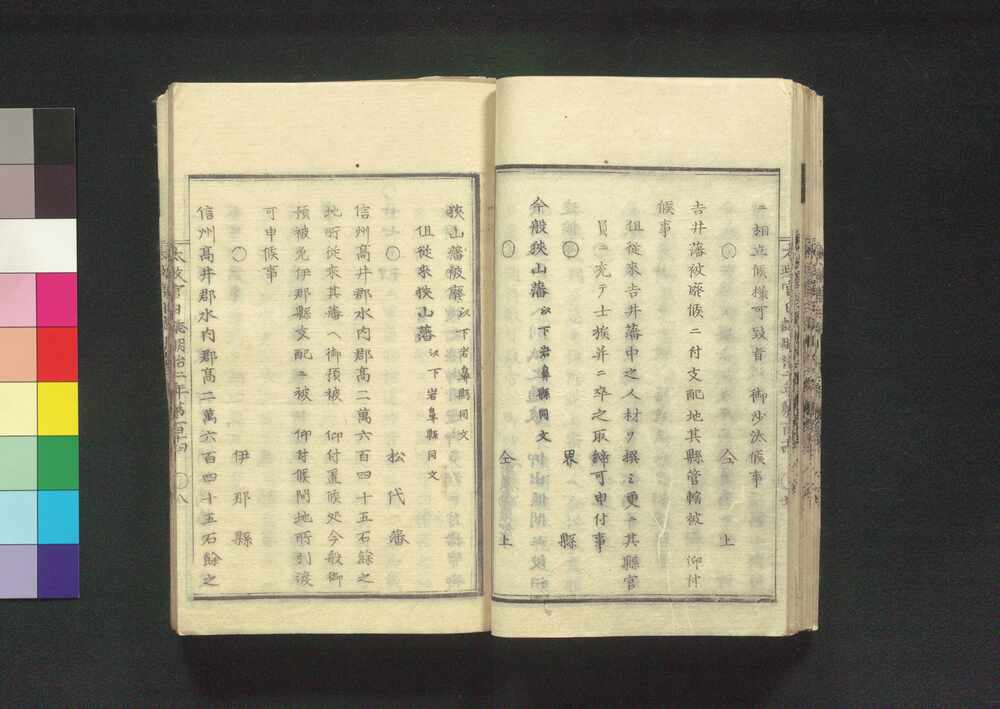 ニ相立候様可致旨 御沙汰候事
○ 仝 上
吉井藩被廃候ニ付支配地其縣管轄被 仰付
候事
但従来吉井藩中之人材ヲ撰ミ更ニ其縣官
員ニ充テ士族并ニ卒之取締可申付事
○ 界 縣
今般狭山藩以下岩鼻縣同文
○ 仝 上
狭山藩被廃以下岩鼻縣同文
但従来狭山藩以下岩鼻縣同文
○ 松代藩
信州高井郡水内郡高二萬六百四十五石餘之
地所従来其藩ヘ御預被 仰付置候処今般御
預被免伊那縣支配ニ被 仰付候間地所引渡
可申候事
○ 伊那縣
信州高井郡水内郡高二萬六百四十五石餘之
太政官日誌明治二年第百十四 ○八